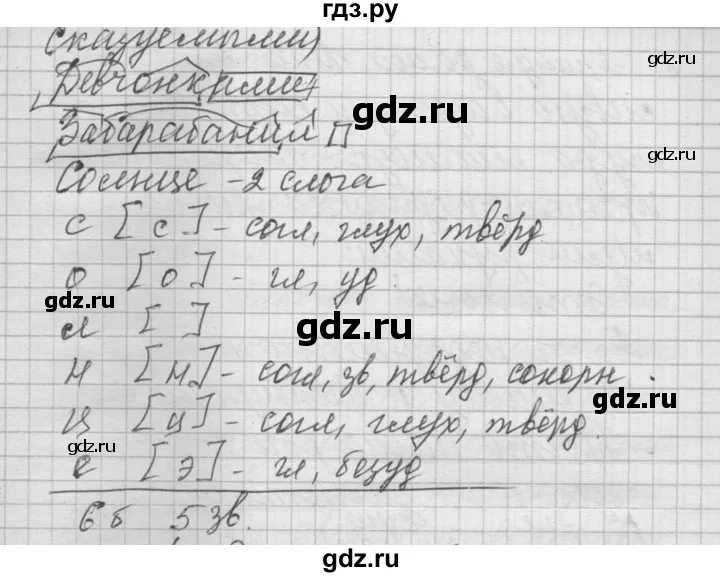 гдз.ру
сказуемыми)
gdz.ru
Девчонками
Забарабанил
gdz.ru
gdz.ru
Солнце - 2 слога
с [с] - согл, глух, твёрд
о [о] - гл, уд.
gdz.ru
gdz.ru
л [ ]
н [н] - согл, зв, твёрд, сонорн.
gdz.ru
ц [ц] - согл, глух, твёрд.
gdz.ru
е [э] - гл, безуд
gdz.ru
6 б 5 зв.
gdz.ru